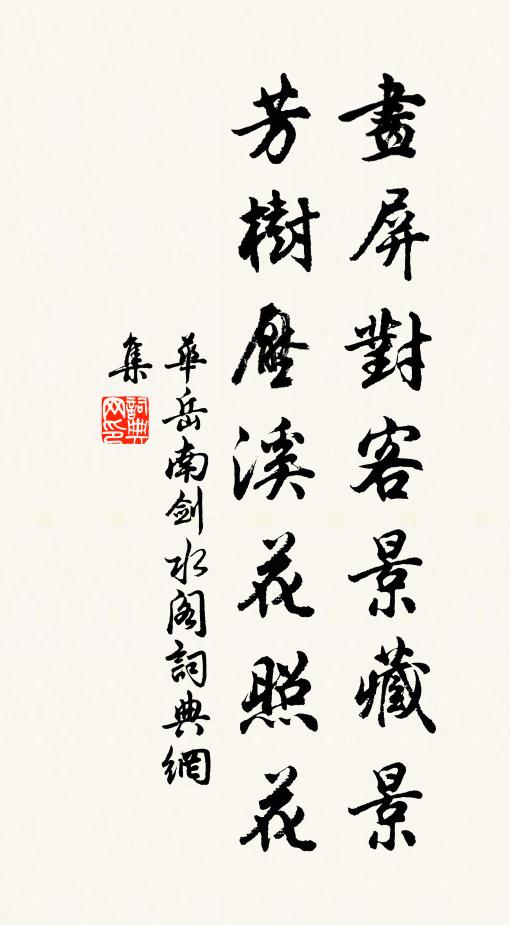 畫屏對客景藏景
芳樹壓溪花照花
華岳南劍水閣詞典網
集
詞典
网印